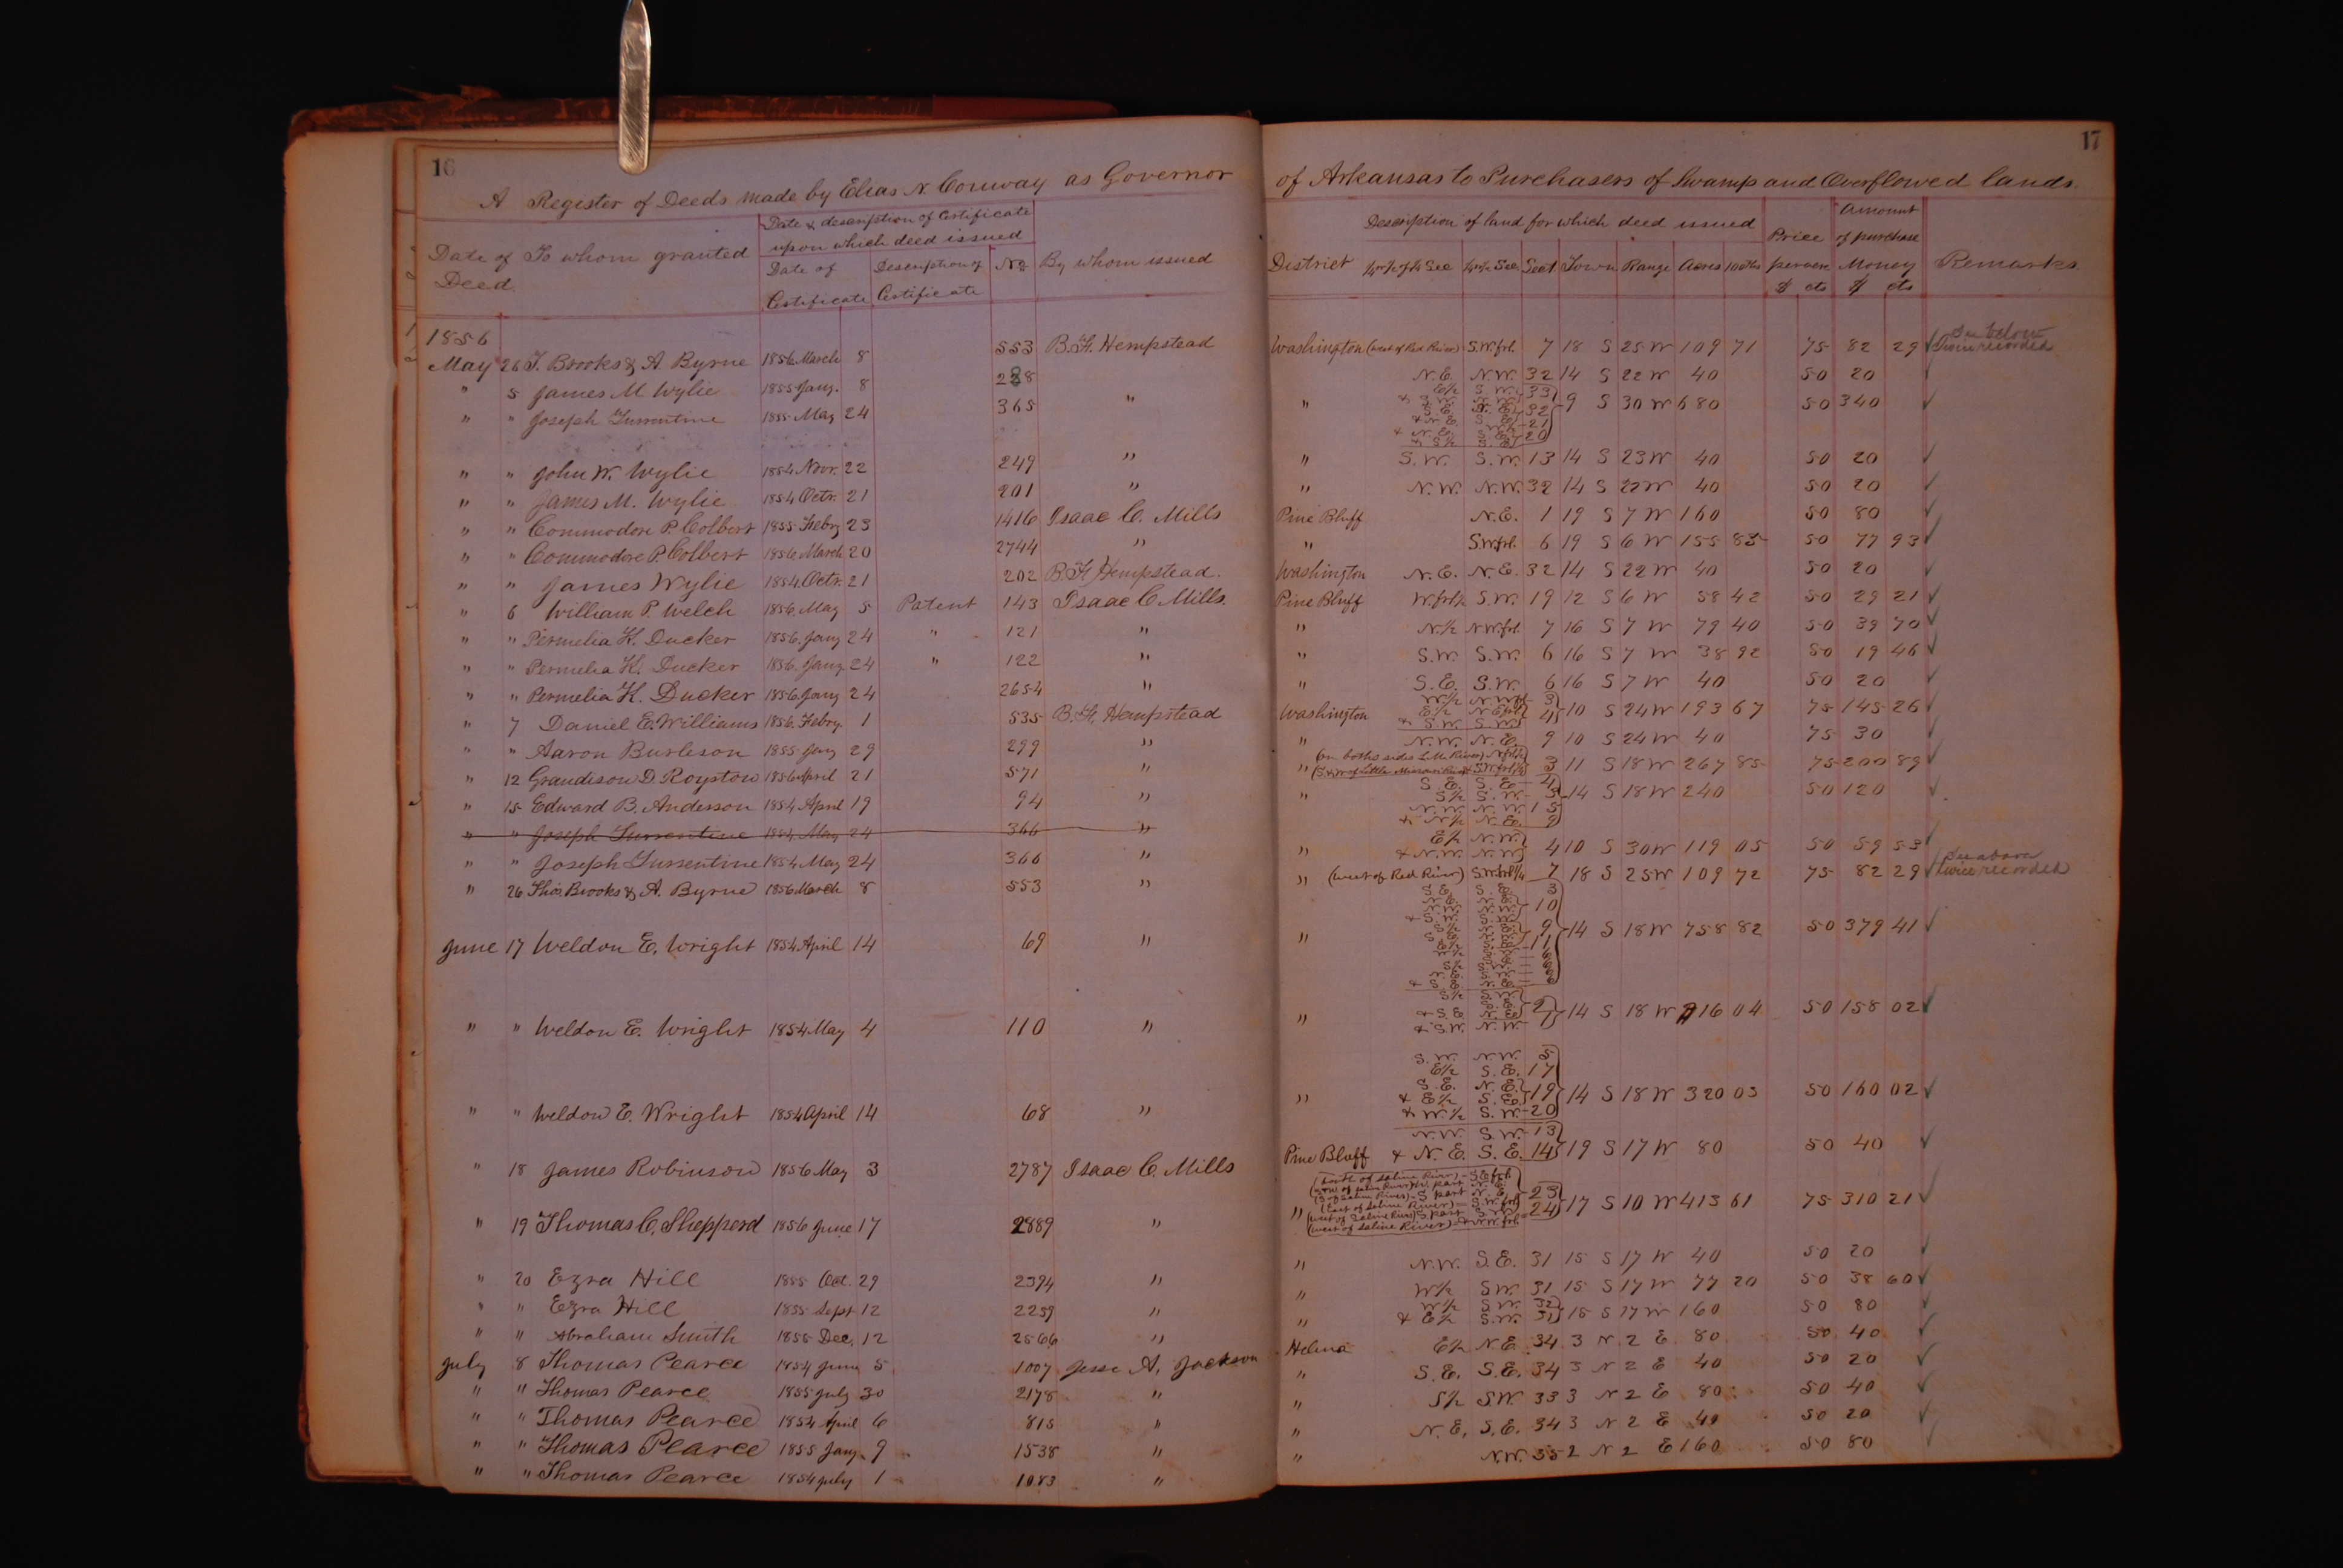 16
17
A Register of Deeds made by Elias N. Conway as Governor of Arkansas to Purchasers of Swamp and Overflowed lands.
Date of Deed. To whom granted Date & description of Certificate upon which deed issued Date of Certificate Description of Certificate No. By whom issued
Description of land for which deed issued District Sect Town Range Acres 100ths Price per acre $ cts Amount of purchase Money $ cts Remarks
1856
May 26 T. Brooks & A. Byrne 1856 March 8 553 B. F. Hempstead Washington (west of Red River) S.W. frl. 7 18 S 25 W 109 71 75 82 29 ✓ See below Twice recorded
" 5 James M Wylie 1855 Jany. 8 N.E. N.W. 32 14 S 22 W 40 50 20
" " Joseph Turrentine 1855 May 24 365 " " 9 S 30 W 680 50 340 ✓
" " John W. Wylie 1854 Nov. 22 249 " " S.W. S.W. 13 14 S 23 W 40 50 20 ✓
" " James M. Wylie 1854 Octr. 21 201 " " N.W. N.W. 32 14 S 22 W 40 50 20 ✓
" " Commodore P. Colbert 1855 Febry 23 1416 Isaac C. Mills Pine Bluff N.E. 1 19 S 7 W 160 50 80 ✓
" " Commodore P. Colbert 1856 March 20 2744 " " S.W. frl. 6 19 S 6 W 155 85 50 77 93 ✓
" " James Wylie 1854 Octr. 21 202 B. F. Hempstead. Washington N.E. N.E. 32 14 S 22 W 40 50 20 ✓
" 6 William P. Welch 1856 May 5 Patent 143 Isaac C Mills. Pine Bluff W. frl ½ S.W. 19 12 S 6 W 58 42 50 29 21 ✓
" " Permelia K. Ducker 1856 Jany 24 " 121 " " N.½ N.W. frl. 7 16 S 7 W 79 40 50 39 70 ✓
" " Permelia K. Ducker 1856 Jany 24 " 122 " " S.W. S.W. 6 16 S 7 W 38 92 50 19 46 ✓
" " Permelia K. Ducker 1856 Jany 24 2654 " " S.E. S.W. 6 16 S 7 W 40 50 20 ✓
" 7 Daniel E. Williams 1856 Febry. 1 535 B. F. Hempstead Washington 10 S 24 W 193 67 75 145 26 ✓
" " Aaron Burleson 1855 Jany 29 299 " " N.W. N.E. 9 10 S 24 W 40 75 30 ✓
" 12 Grandison D. Royston 1856 April 21 571 " " (on boths sides L. M. River) 3 11 S 18 W 267 85 75 200 89 ✓
" 15 Edward B. Anderson 1854 April 19 94 " " 14 S 18 W 240 50 120 ✓
" " Joseph Turrentine 1854 May 24 366 "
" " Joseph Turrentine 1854 May 24 366 " " E½ N.W. & N.W. N.W. 4 10 S 30 W 119 05 50 59 53 ✓
" 26 Thos. Brooks & A. Byrne 1856 March 8 553 " " (west of Red River) S.W. frl ¼ 7 18 S 25 W 109 72 75 82 29 ✓ See above twice recorded
June 17 Weldon E. Wright 1854 April 14 69 " " 14 S 18 W 758 82 50 379 41 ✓
" " Weldon E. Wright 1854 May 4 110 " " & S.W. N.W. 1 14 S 18 W 16 04 50 158 02 ✓
" " Weldon E. Wright 1854 April 14 68 " " S.W. N.W. 5 E½ S.E. 17 S.E. N.E. & E½ S.E. 19 & W.½ S.W. 20 14 S 18 W 320 03 50 160 02 ✓
" 18 James Robinson 1856 May 3 2787 Isaac C. Mills Pine Bluff N.W. S.W. 13 & N.E. S.E. 14 19 S 17 W 80 50 40 ✓
" 19 Thomas C. Shepperd 1856 June 17 2889 " " 23 24 17 S 10 W 413 61 75 310 21 ✓
" 20 Ezra Hill 1855 Oct. 29 2394 " " N.W. S.E. 31 15 S 17 W 40 50 20 ✓
" " Ezra Hill 1855 Sept 12 2259 " " W½ S.W. 31 15 S 17 W 77 20 50 38 60 ✓
" " Abraham Smith 1855 Dec. 12 2566 " " W½ S.W. 32 & E½ S.W. 31 15 S 17 W 160 50 80 ✓
July 8 Thomas Pearce 1854 June 5 1007 Jesse A. Jackson Helena E½ N.E. 34 3 N 2 E 80 50 40 ✓
" " Thomas Pearce 1855 July 30 2178 " " S.E. S.E. 34 3 N 2 E 40 50 20 ✓
" " Thomas Pearce 1854 April 6 815 " " S½ S.W. 33 3 N 2 E 80 50 40 ✓
" " Thomas Pearce 1855 Jany. 9 1538 " " N.E. S.E. 34 3 N 2 E 40 50 20 ✓
" " Thomas Pearce 1854 July 1 1083 " " N.W. 35 2 N 2 E 160 50 80 ✓